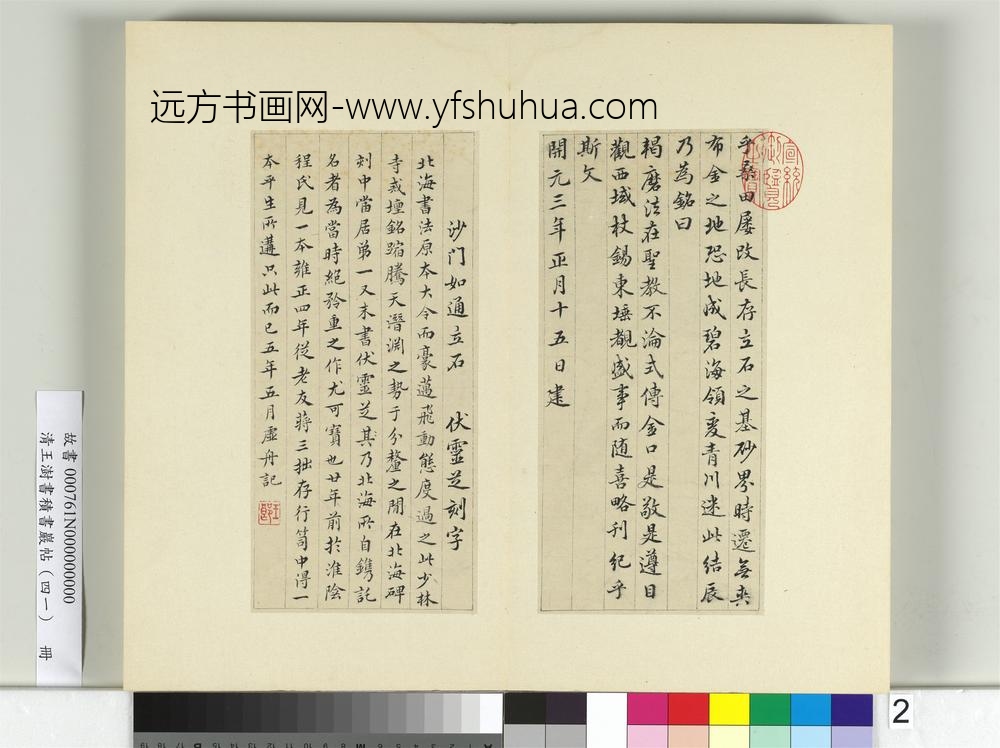 远方书画网-www.yfshuhua.com
乎桑田屡改長存立石之基砂界時遷無爽
布金之地恐地成碧海領變青川迷此結辰
乃為銘曰
羯磨法在聖教不淪式傳金口是敬是遵目
觀西域杖錫東埵覩盛事而随喜略刊紀乎
斯文
開元三年正月十五日建
沙门如通立石 伏靈芝刻字
北海書法原本大令而豪邁飛動態度過之此少林
寺戒壇銘蹜騰天潛渊之勢于分釐之閒在北海碑
刻中當居弟一又末書伏靈芝其乃北海所自鐫託
名者為當時絕矜重之作尤可寶也廿年前於淮陰
程氏見一本雍正四年從老友蒋三拙存行笥中得一
本平生所遘只此而已五年五月虛舟記
故書 000761N000000000
清王澍書積書巖帖（四一） 冊
2